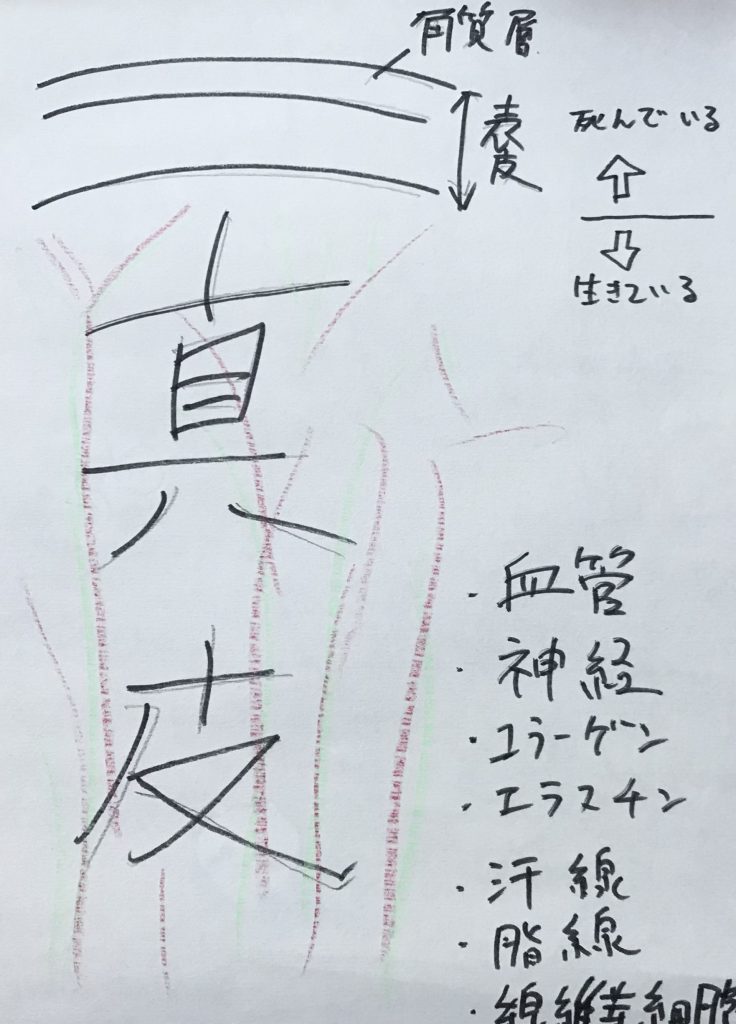 角質層
表皮
死んでいる
生きている
真皮
・血管
・神経
・コラーゲン
・エラスチン
・汗線
・脂線
・線維芽細胞